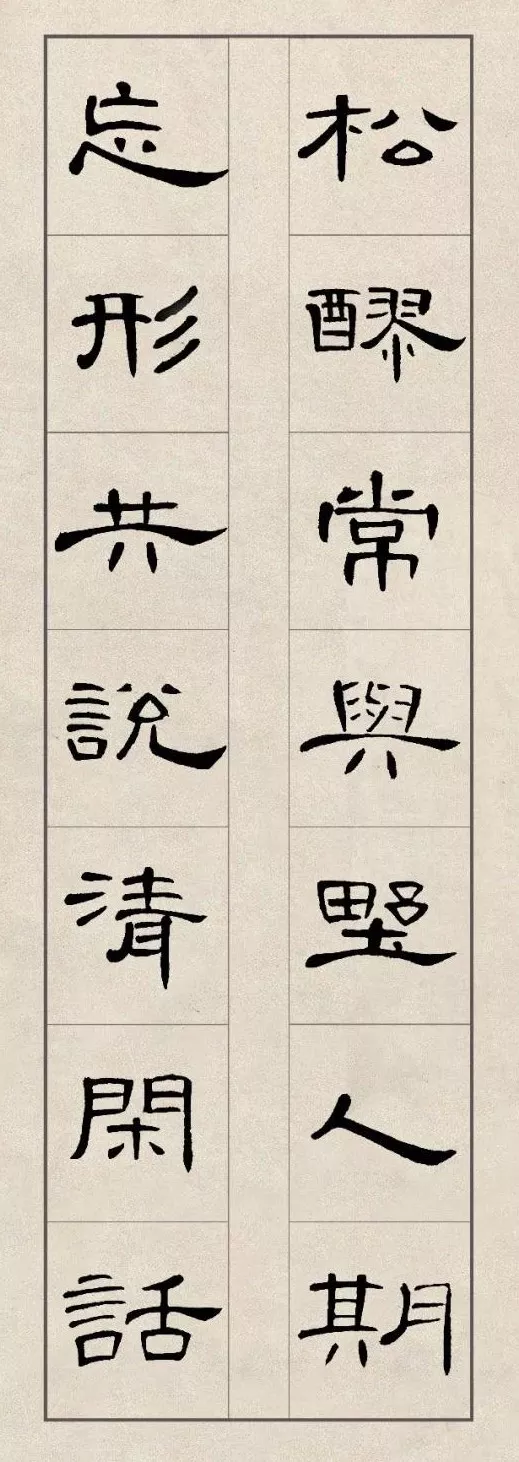 松醪常與野人期
忘形共說清閑話